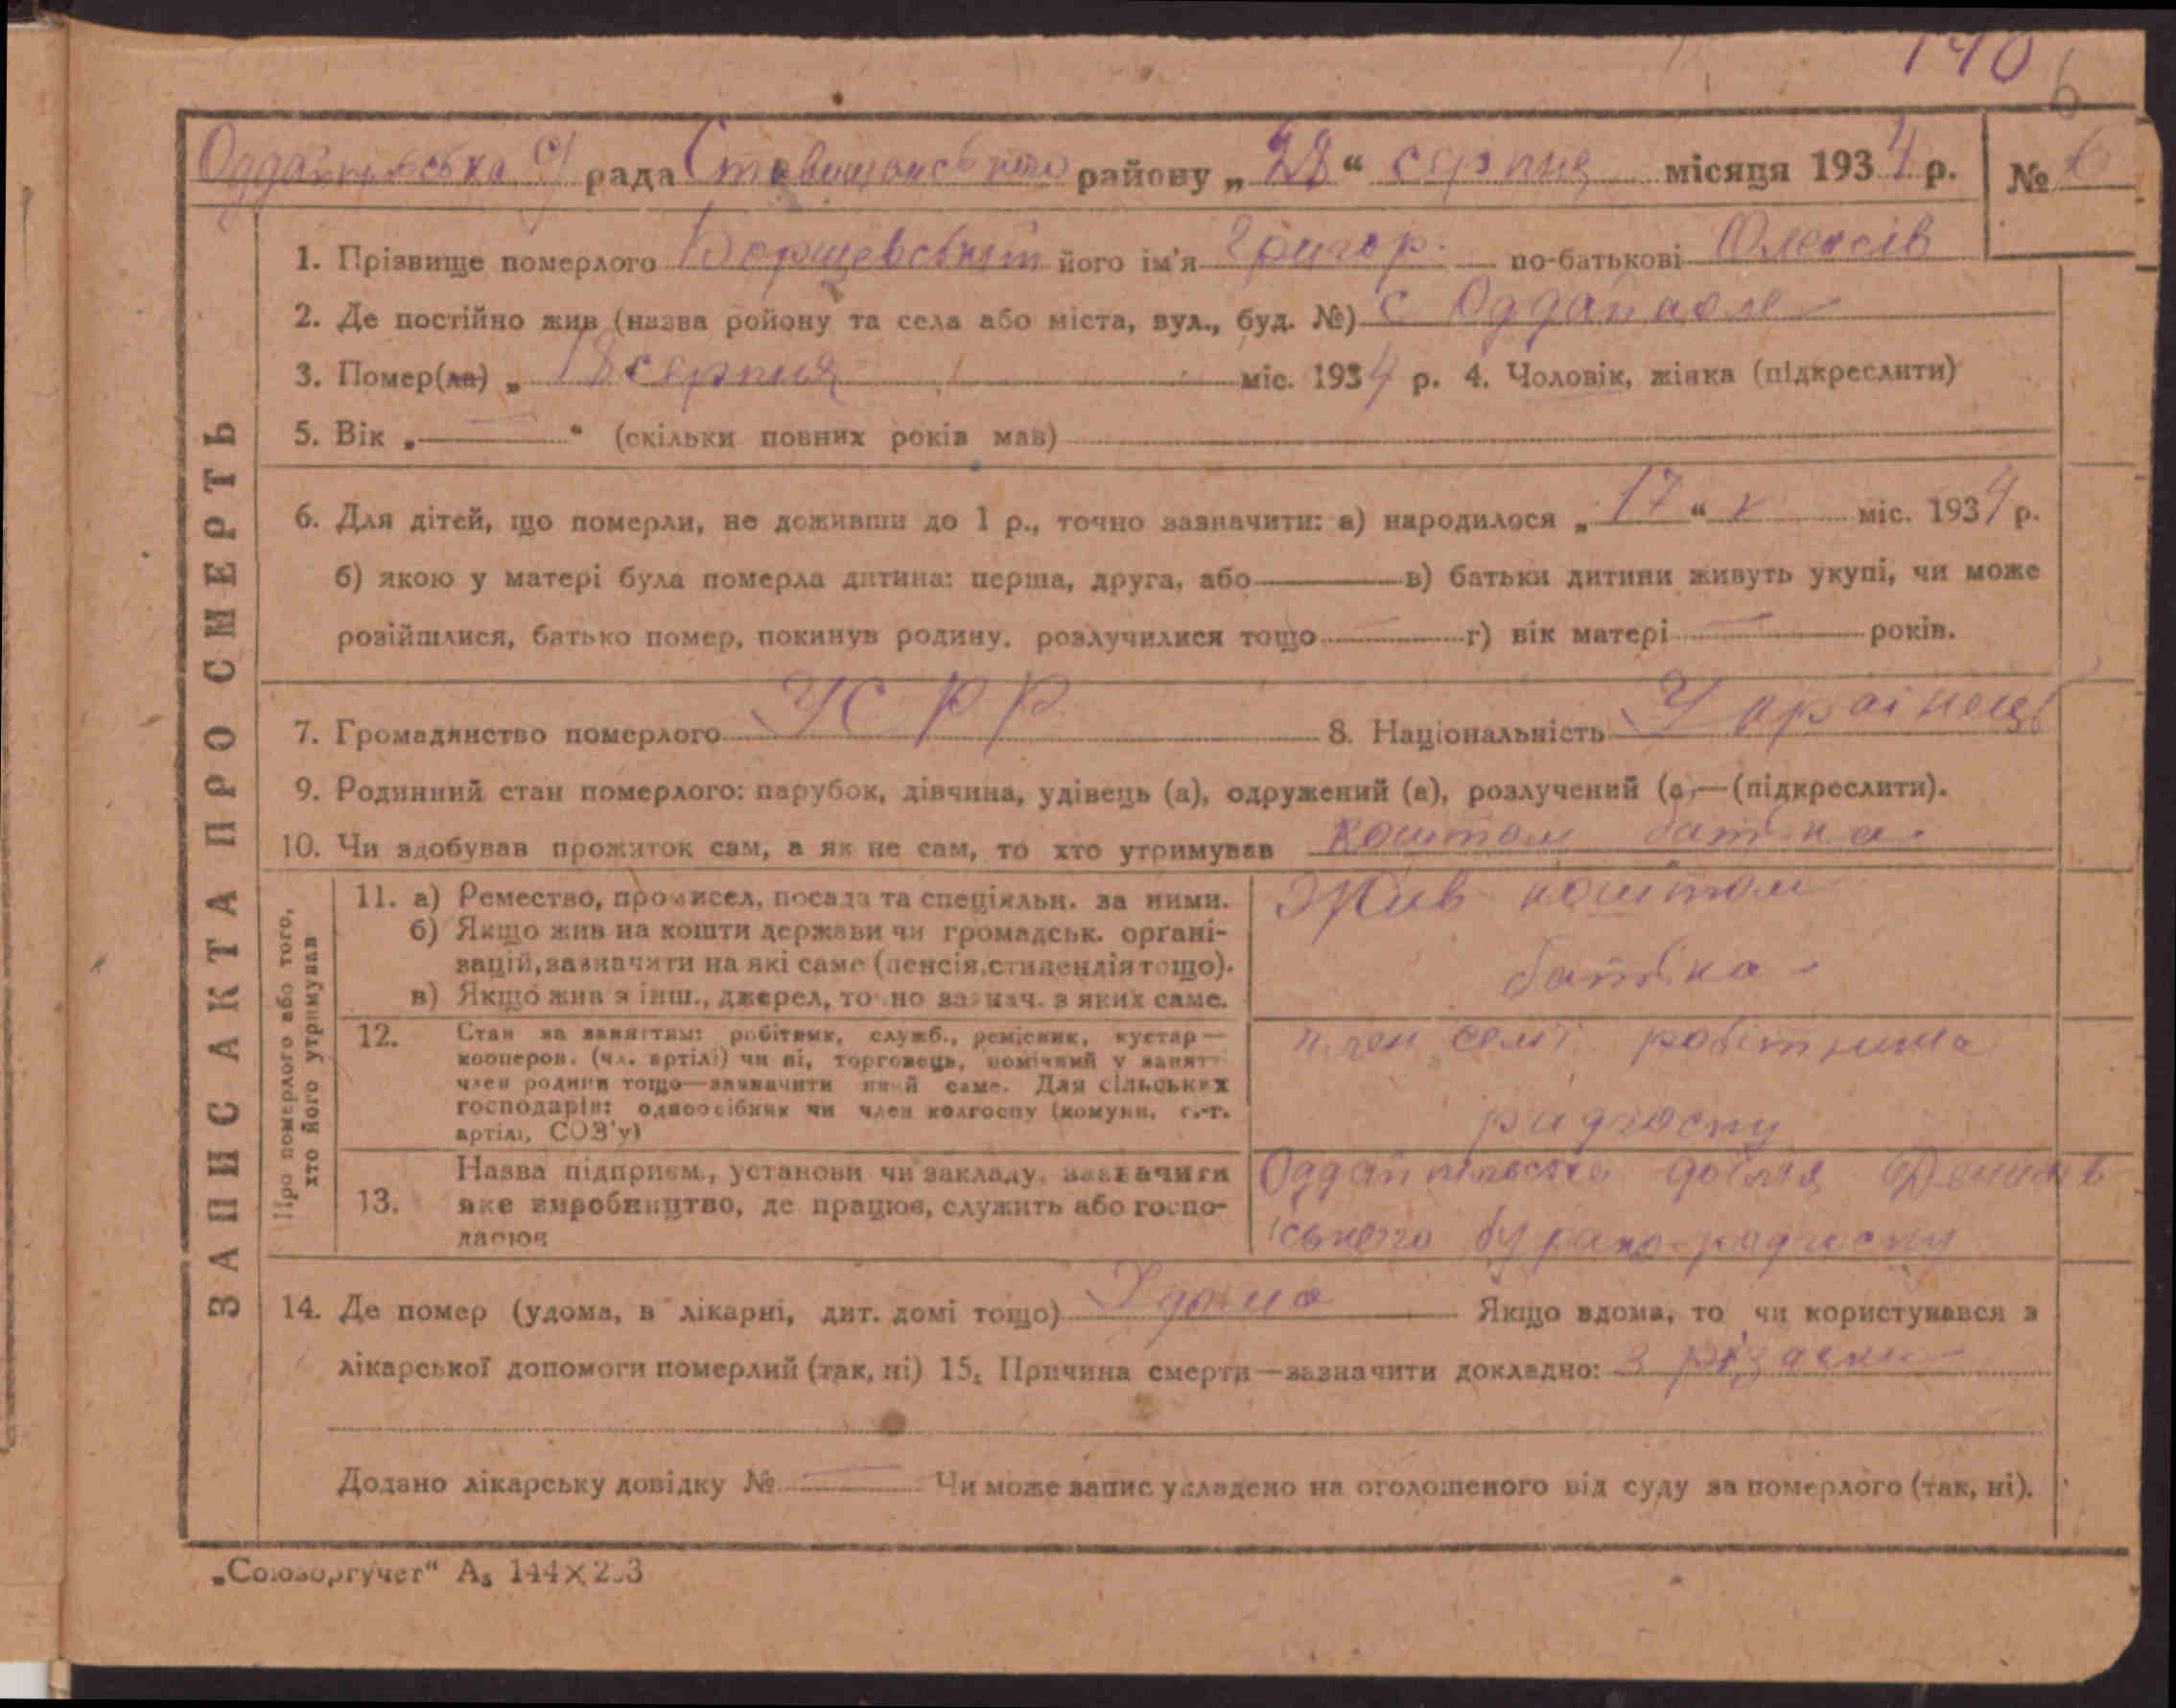 140
6
Оддайпільська с/ рада Ставищанського району „28“ серпня місяця 1934 р. № 6
ЗАПИС АКТА ПРО СМЕРТЬ
1. Прізвище померлого Борщевський його ім'я Григор. по-батькові Олексів
2. Де постійно жив (назва ройону та села або міста, вул., буд. №) с Оддайполе
3. Помер(ла) „ 18 серпня міс. 1934 р. 4. Чоловік, жінка (підкреслити)
5. Вік „ “ (скільки повних років мав)
6. Для дітей, що померли, не доживши до 1 р., точно зазначити: а) народилося „17“ V міс. 1934 р.
б) якою у матері була померла дитина: перша, друга, або в) батьки дитини живуть укупі, чи може
розійшлися, батько помер, покинув родину, розлучилися тощо г) вік матері років.
7. Громадянство померлого УСРР 8. Національність Українець
9. Родинний стан померлого: парубок, дівчина, удівець (а), одружений (а), розлучений (а)—(підкреслити).
10. Чи здобував прожиток сам, а як не сам, то хто утримував коштом батька
Про померлого або того,
хто його утримував
11. а) Ремество, промисел, посада та спеціяльн. за ними.
б) Якщо жив на кошти держави чи громадськ. органі-
зацій, зазначити на які саме (пенсія, стипендія тощо).
в) Якщо жив з інш., джерел, точно зазнач. з яких саме.
Жив коштом
батька
12. Стан за заняттям: робітник, служб., ремісник, кустар—
кооперов. (чл. артілі) чи ні, торговець, помічний у занятт
член родини тощо—зазначити який саме. Для сільських
господарів: одноосібник чи член колгоспу (комуни, с.-г.
артілі, СОЗ'у)
член семї робітника
радгоспу
13. Назва підприєм., установи чи закладу, зазначити
яке виробництво, де працює, служить або госпо-
дарює
Оддайпільська дільня
ського буряко-радгоспу
14. Де помер (удома, в лікарні, дит. домі тощо) Удома Якщо вдома, то чи користувався з
лікарської допомоги померлий (так, ні) 15. Причина смерти—зазначити докладно: з різачки
Додано лікарську довідку № Чи може запис укладено на оголошеного від суду за померлого (так, ні).
„Союзоргучет“ А₅ 144×2 3